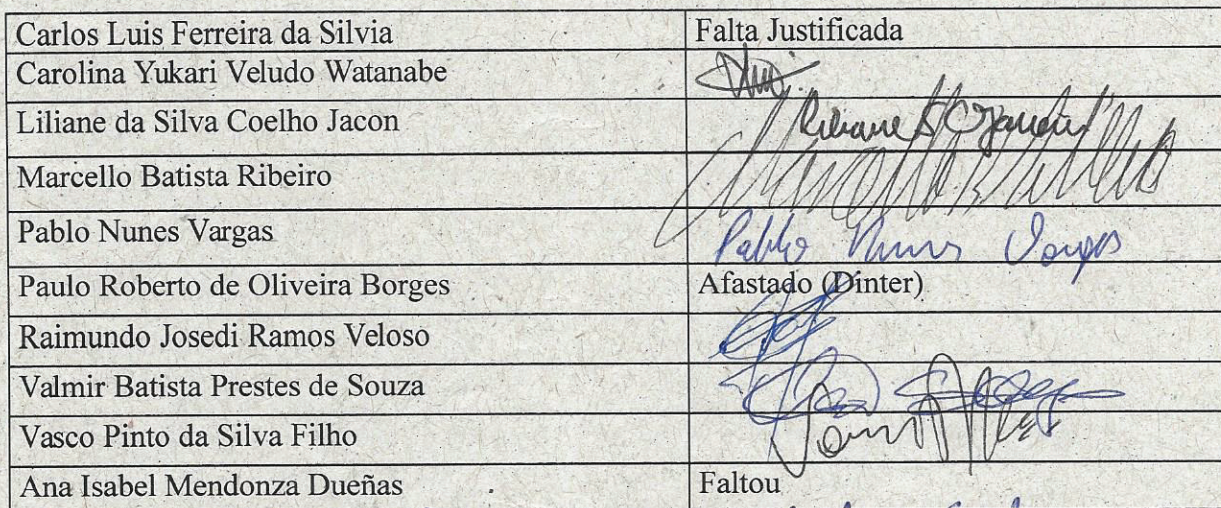 Carlos Luis Ferreira da Silvia Falta Justificada
Carolina Yukari Veludo Watanabe
Liliane da Silva Coelho Jacon
Marcello Batista Ribeiro
Pablo Nunes Vargas Pablo Nunes Vargas
Paulo Roberto de Oliveira Borges Afastado (Dinter)
Raimundo Josedi Ramos Veloso
Valmir Batista Prestes de Souza
Vasco Pinto da Silva Filho
Ana Isabel Mendonza Dueñas Faltou